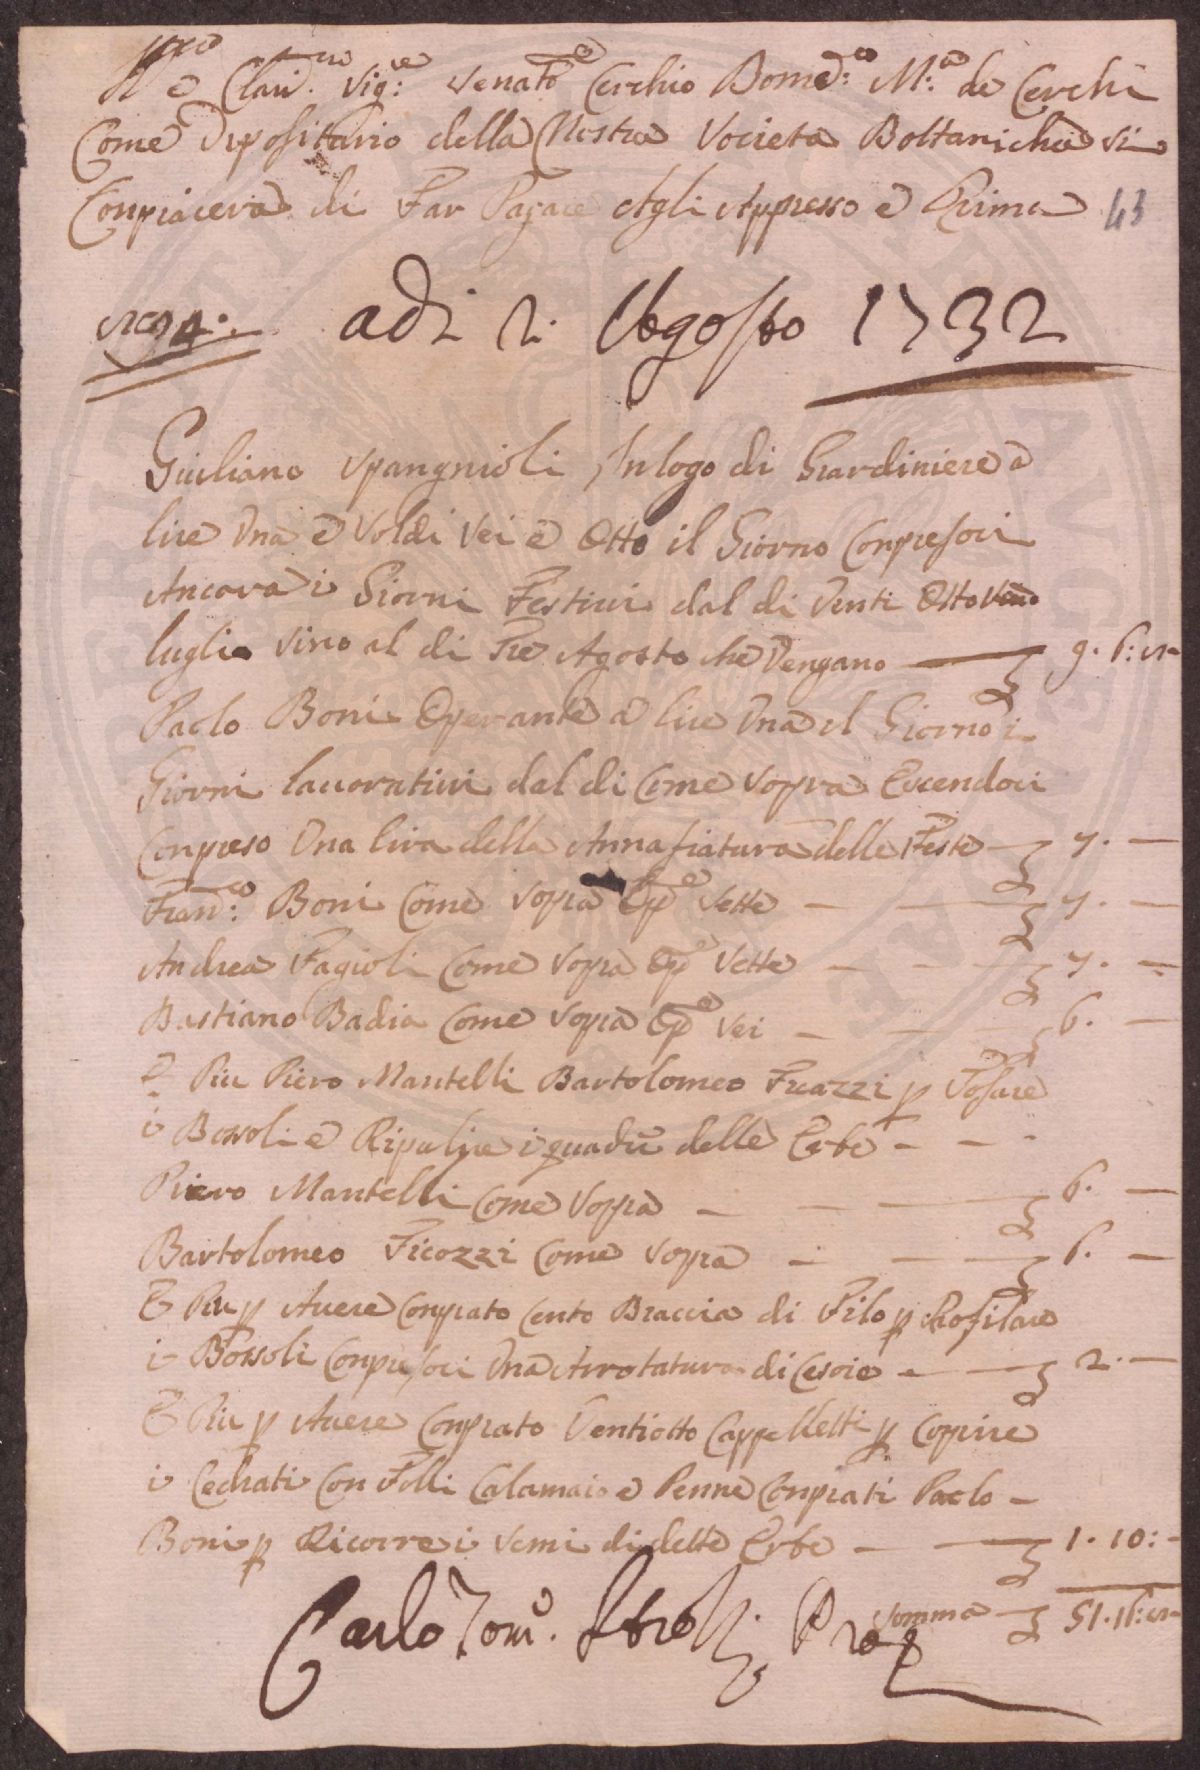 Ill.mo e Clari.mo Sig.re Senato.re Cerchio Dome.co M.a de Cerchi
Come Dipositario della Nostra Società Bottanicha si
Conpiacera di Far Pagare Agli Appresso e Prima 43
adi 2 Agosto 1732
Giuliano Spangnioli In logo di Giardiniere a
lire Una e Soldi Sei e Otto il Giorno Conpresoci
Ancora i Giorni Festivi dal di Venti Otto
luglio Sino al di Tre Agosto che Vengano 9. 6:
Paolo Boni Operante a lire Una il Giorno i
Giorni lavorativi dal di Come Sopra Escendoci
Conpreso Una lira della Annafiatura delle Feste 7. —
Fran.co Boni Come Sopra Op.e Sette — 7. —
Andrea Fagioli Come Sopra Op.e Sette — 7. —
Bastiano Badia Come Sopra Op.e Sei — 6. —
E Piu Piero Mantelli Bartolomeo p Tosare
i Bossoli e Ripulire i quadri delle Erbe - - -
Piero Mantelli Come Sopra — 6. —
Bartolomeo Ficozzi Come Sopra — 6. —
E Piu p Avere Conprato Cento Braccia di Filo p Rofilare
i Bossoli Conpresoci Una Arrotatura di Cesoie — 2. —
E Piu p Avere Conprato Ventiotto Cappelletti p Coprire
i Cedrati Con Folli Calamaio e Penne Conprati Paolo —
Boni p Ricorre i Semi di dette Erbe — 1. 10: -
Somma 51. 16:
Carlo Tom.o Strozzi